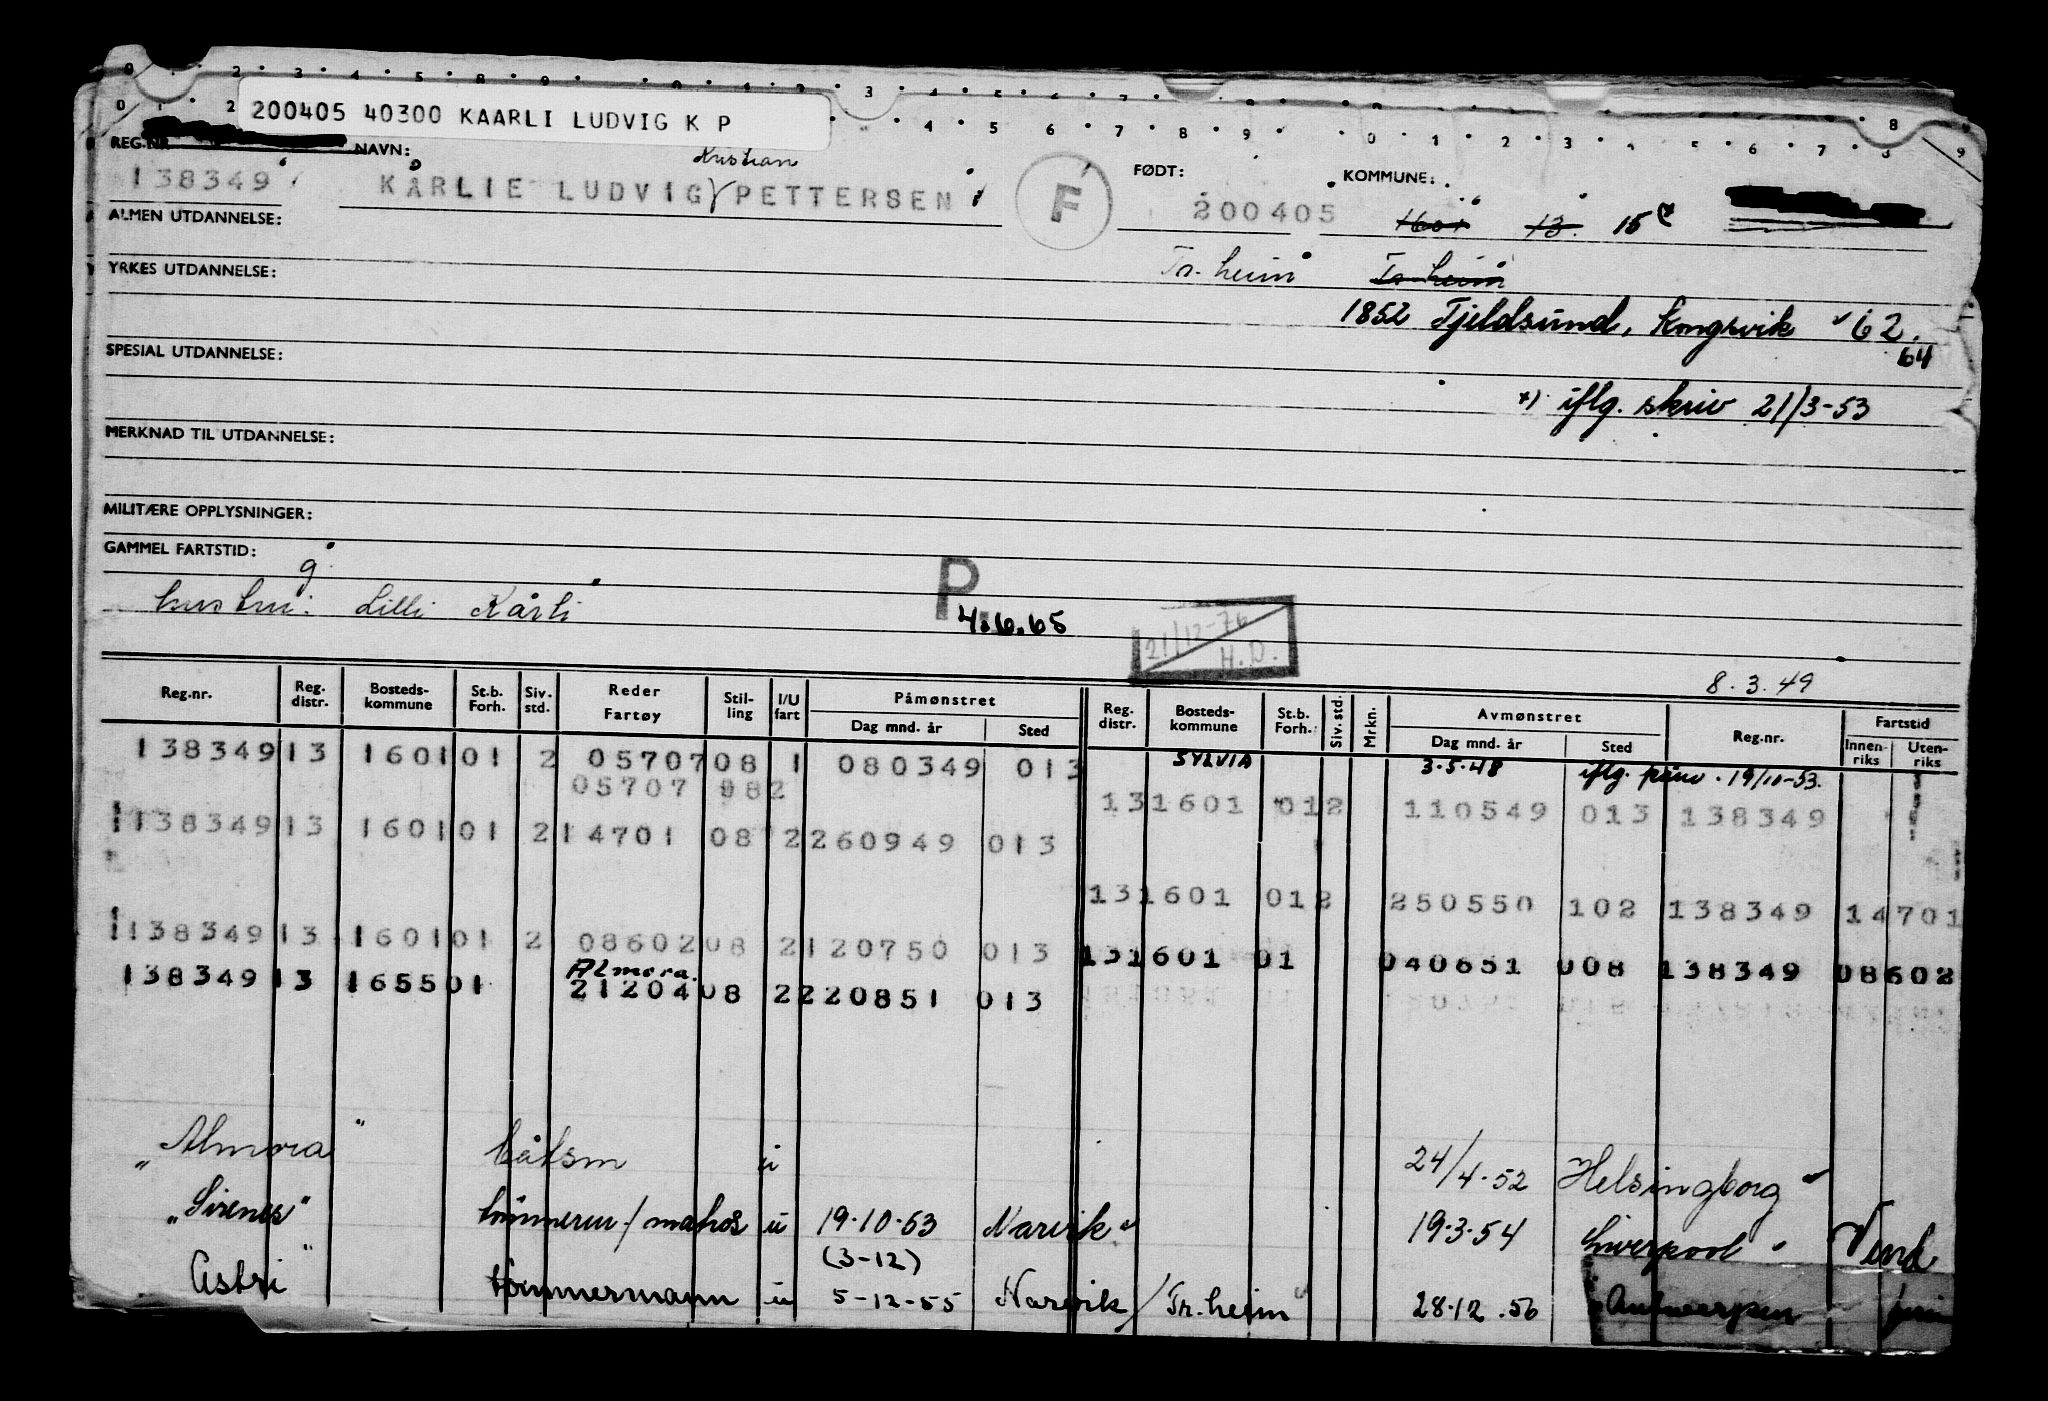 200405 40300 KAARLI LUDVIG K P
REG.NR. NAVN: FØDT: KOMMUNE:
Kristian
138349 KÅRLIE LUDVIG PETTERSEN F 200405 1601 13. 15
ALMEN UTDANNELSE:
YRKES UTDANNELSE: Tr.heim Tr.heim
1852 Tjeldsund, Kongsvik 62.
64
SPESIAL UTDANNELSE:
x) iflg. skriv 21/3-53
MERKNAD TIL UTDANNELSE:
MILITÆRE OPPLYSNINGER:
GAMMEL FARTSTID:
g
hustru: Lilli Kårli P. 4.6.65 21/12-76 H.D.
8.3.49
Reg.nr. Reg. distr. Bosteds-kommune St.b. Forh. Siv. std. Reder Fartøy Stil-ling I/U fart Påmønstret Dag mnd. år Sted Reg. distr. Bosteds-kommune St.b. Forh. Siv. std. Mrkn. Avmønstret Dag mnd. år Sted Reg.nr. Fartstid Innen-riks Uten-riks
138349 13 1601 01 2 05707 08 1 080349 013 SYLVIA 3.5.48 iflg. 19/10-53.
05707 08 2 13 1601 01 2 110549 013 138349
138349 13 1601 01 2 14701 08 2 260949 013
13 1601 01 2 250550 102 138349 14701
138349 13 1601 01 2 08602 08 2 120750 013 13 1601 01 040651 008 138349 08602
Almora.
138349 13 1655 01 21204 08 2 220851 013
"Almora" båtsm u 24/4.52 Helsingborg
"Sirenes" tömmerm/matros u 19.10.53 Narvik 19.3.54 Liverpool
(3-12)
Astri" tømmermann u 5-12-55 Narvik/Tr.heim 28.12.56 Antwerpen